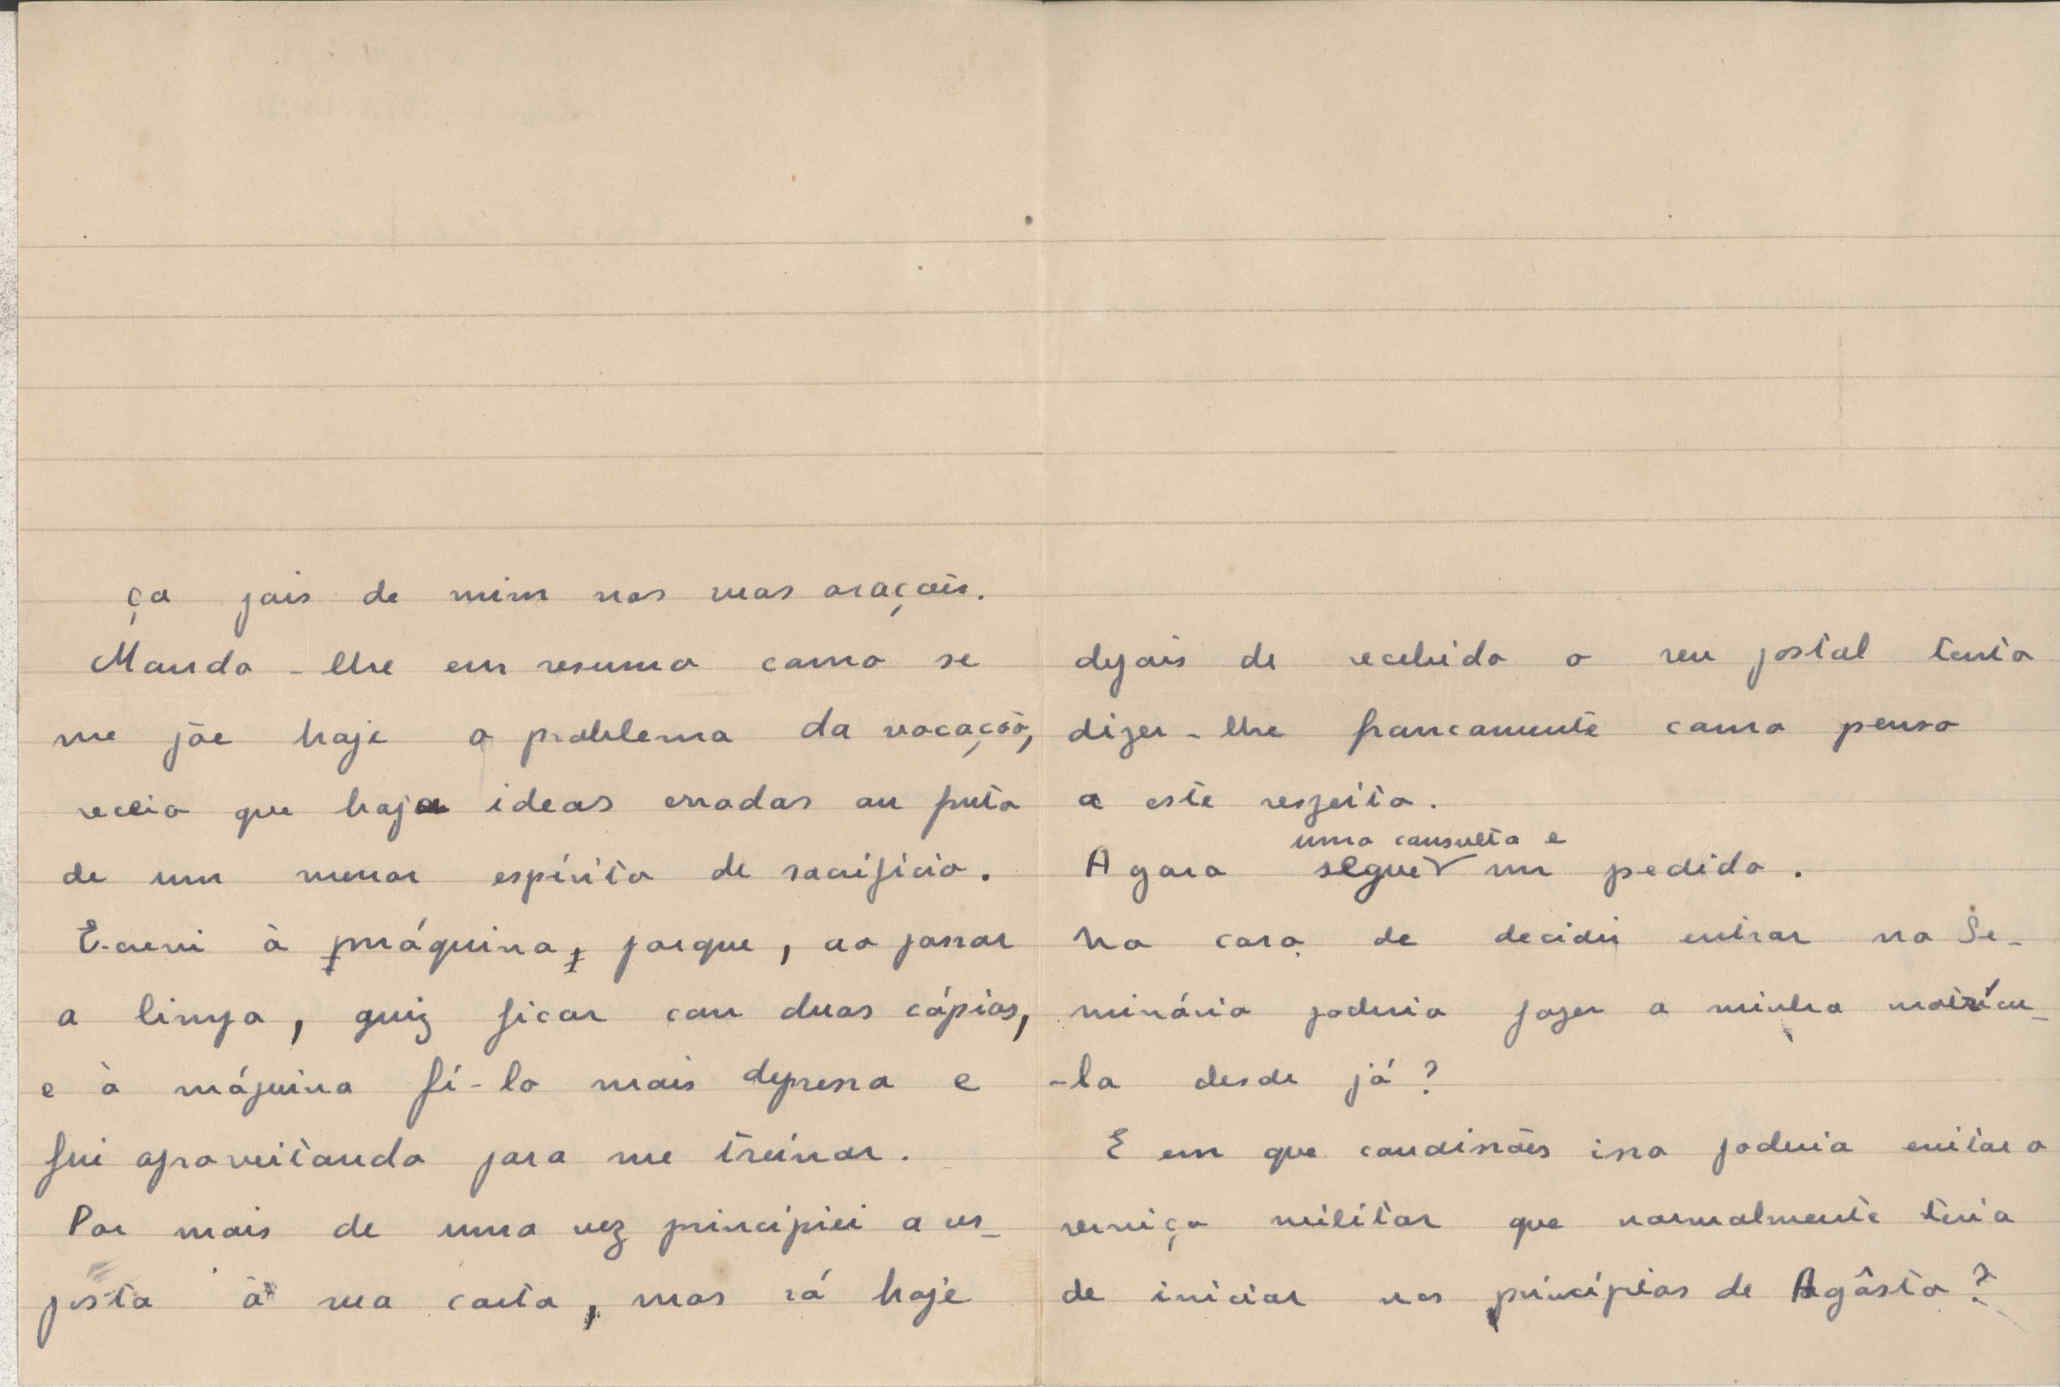 ça pois de mim nas suas orações.
Mando-lhe em resumo como se
me põe hoje o problema da vocação,
receio que haja ideas erradas ou fruto
de um menor espírito de sacrifício.
Escrevi à máquina, porque, ao passar
a limpo, quiz ficar com duas cópias,
e à máquina fi-lo mais depressa e
fui aproveitando para me treinar.
Por mais de uma vez principiei a res-
posta à sua carta, mas só hoje
depois de recebido o seu postal tento
dizer-lhe francamente como penso
a este respeito.
Agora segue uma consulta e um pedido.
No caso de decidir entrar no Se-
minário poderia fazer a minha matrícu-
-la desde já?
E em que condições isso poderia evitar o
serviço militar que normalmente teria
de iniciar nos princípios de Agôsto?